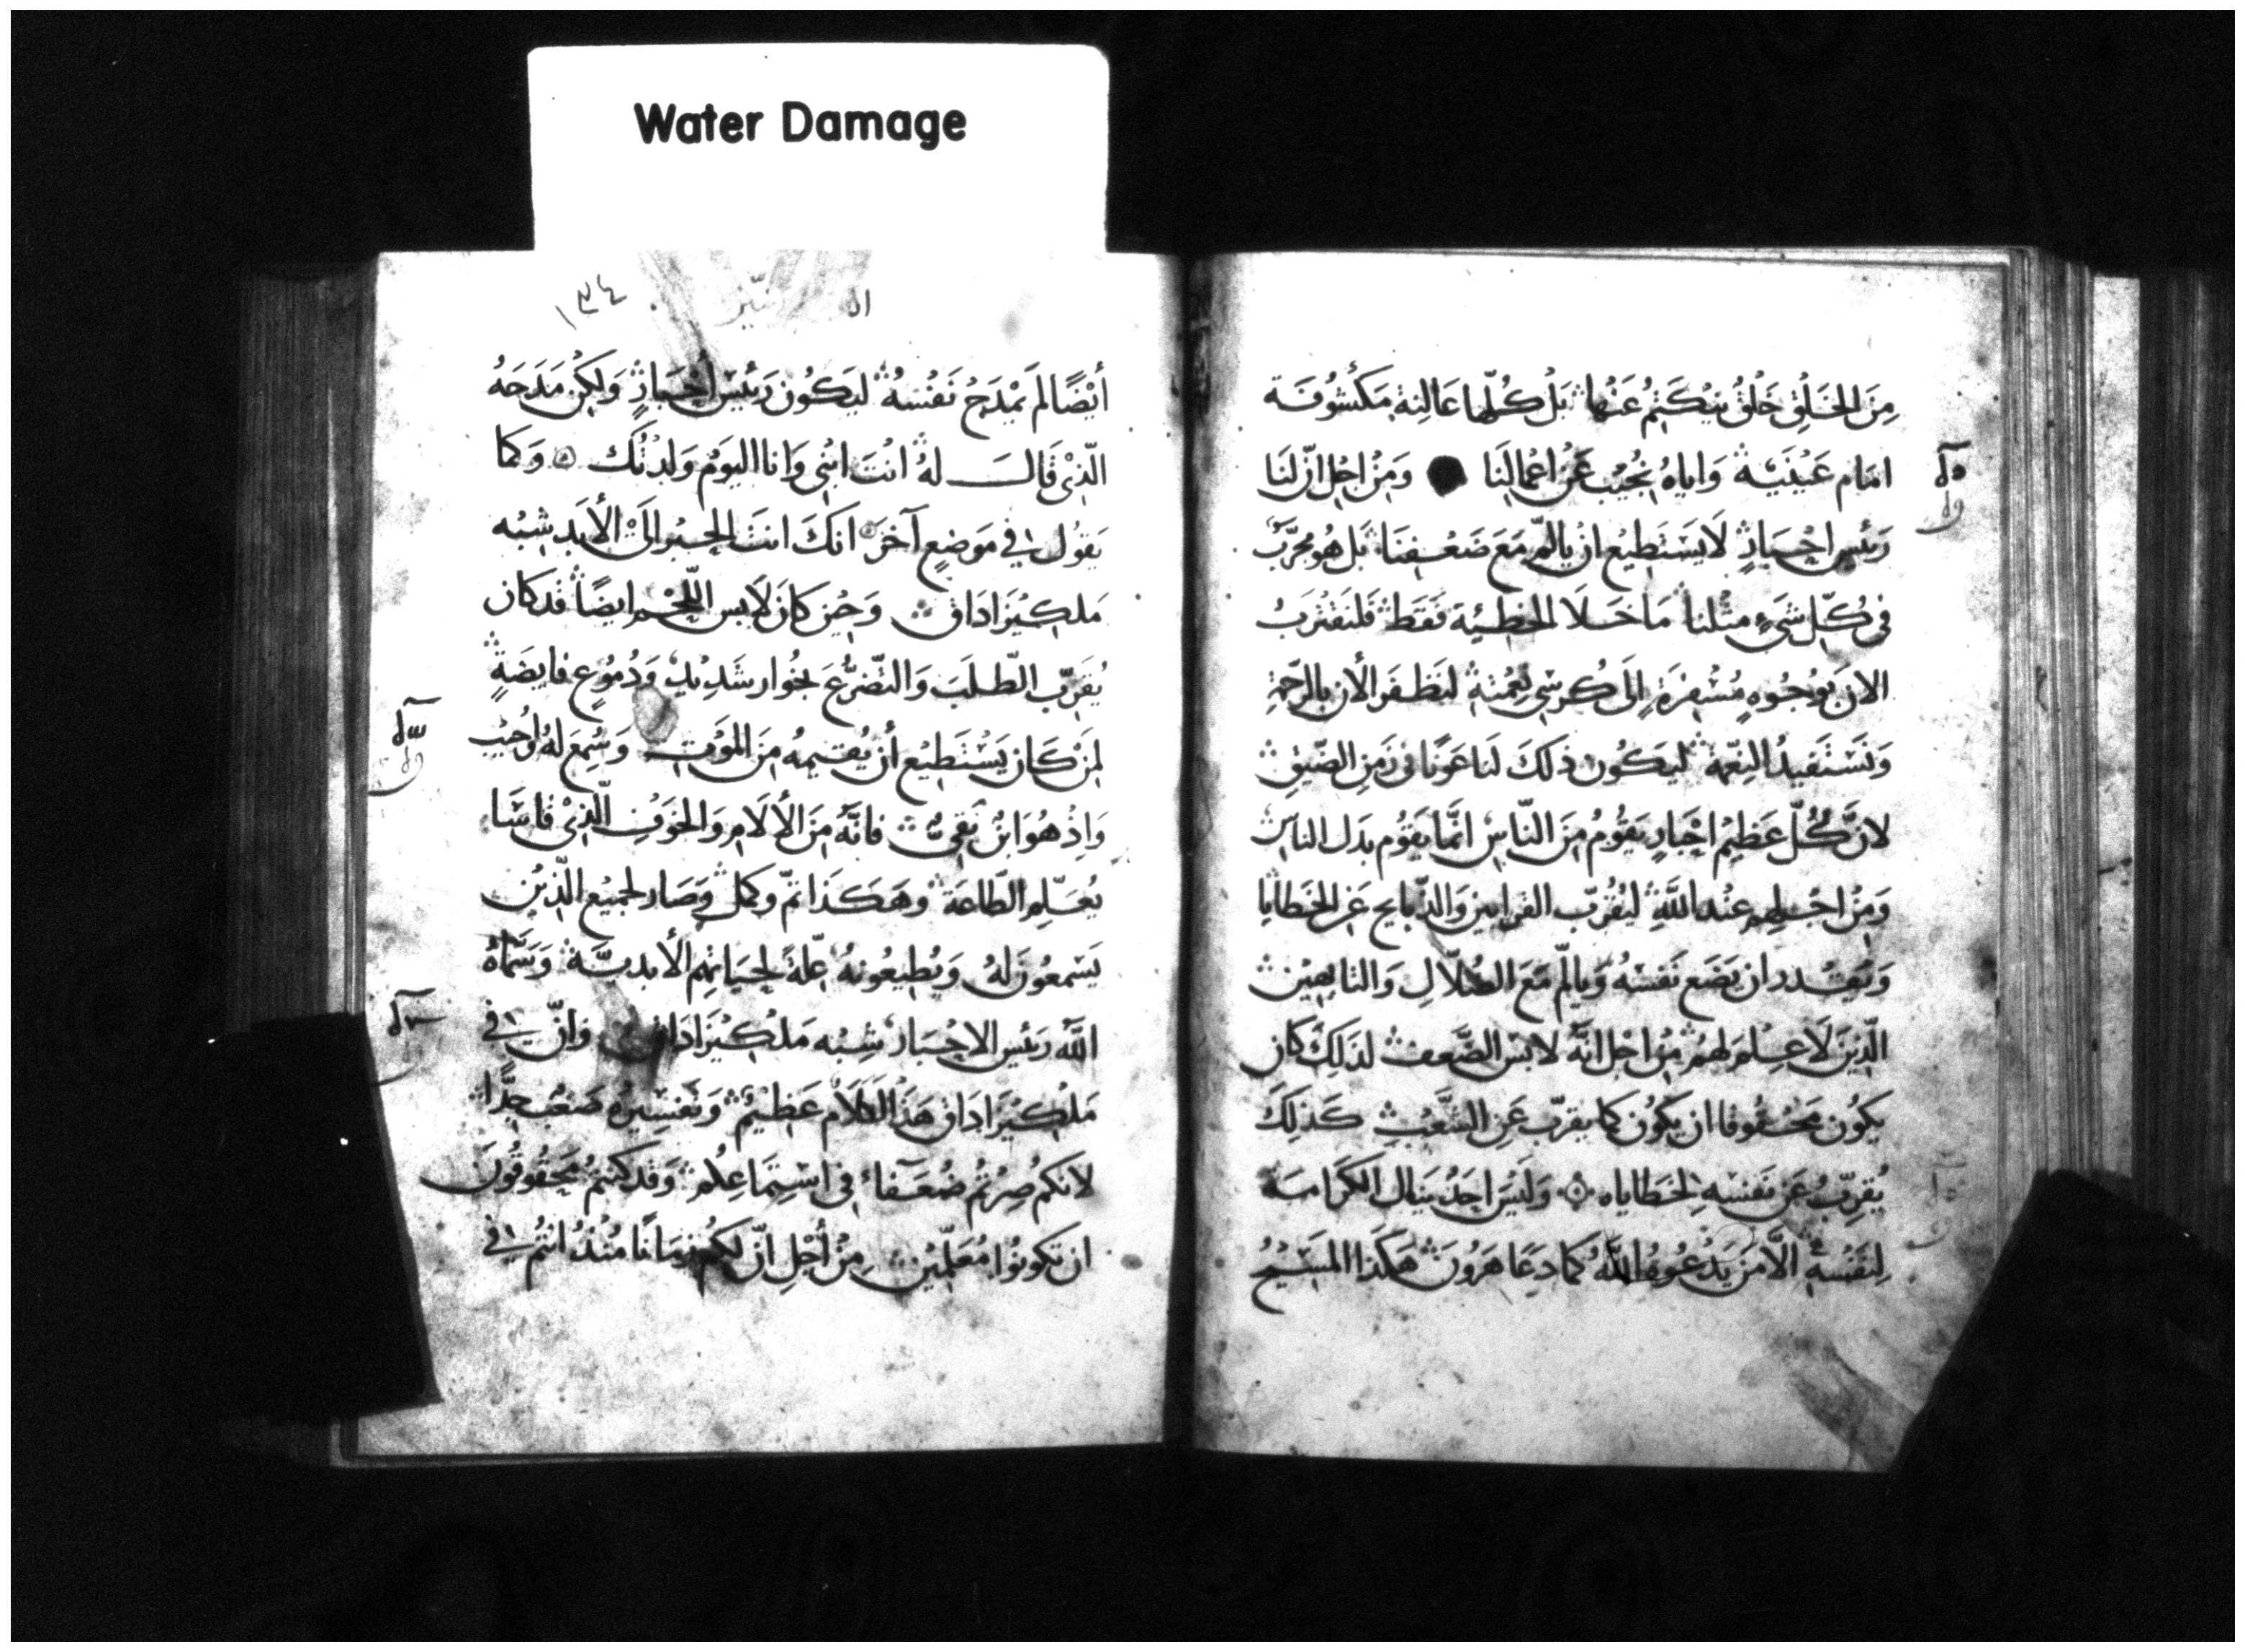 Water Damage
مِنَ الخَلِقِ خَلْقُ يَنْكَتِمُ عَنْهَا بَلْ كُلّها عَالنِة مَكشُوفَة
امَام عَيْنَيْهْ وَاياهُ نُجيُب عَنْ اعْمالِنَا وَمِنْ اجْل انّ لنَا
رَئيس احْبَارٍ لَا يَسْتَطِيع انْ يالم مَعَ ضَعْفِنَا بَل هُو مجرَّبُ
فى كلّ شَىءٍ مثْلنا مَا خَلَا الخطيئة فَقَط فَلنَقتْربُ
الانَ بوُجُوهٍ مُسْفِرَةٍ إلَى كُرسِى نِعْمَتِهِ لنَظفَر الأن بالرَّحمَةِ
وَنَسْتَفيدُ النِعْمة ليَكُون ذلكَ لَنا عَونًا فى زَمِن الضّيِق
لانَّ كُلّ عَظيْم احْبَارٍ يَقُومُ مِنَ النّاسْ انمَّا يَقُوم بدَل الناسِ
وَمِنْ اجْلهِم عنْد اللّهِ ليُقرّب القرابين وَالذّبايح عَن الخَطايا
وَيَقْدر ان يَضَع نَفسَهُ وَيالَم مَعَ الضُلّالِ وَالتايهين
الّذينَ لَا عِلم لَهم مِنْ اجْل انّهُ لابسَ الضَّعف لذَلكَ كان
يكوُن محقُوقا ان يكوُن كما يقرّب عَنِ الشّعبِ كَذلِكَ
يُقرِّبُ عَن نَفسْهِ لخَطاياه وَلَيسَ احَدُ يَنال الكَرامَة
لِنَفْسهِ الّا مَن يَدْعُوهُ اللّهُ كما دعَا هَرُونَ هَكذَا المَسِيْحُ
١٣٤
أيْضًا لَم يمْدَح نَفْسهُ ليَكُون رَئيسْ احْبَارٍ وَلكِن مَدَحَهُ
الّذىْ قَالَ لهُ انْتَ ابْنى وَانا اليَومُ وَلدتُكَ وَكما
يَقوُل فى مَوضِعٍ آخرَ انكَ انتَ الحِبْر الَى الأبَد شِبْه
مَلكيْزَادَاق وَحيْن كانَ لَابس اللحْم ايضًا قدكان
يُقرّب الطّلبَ وَالتضّرُّعَ بخُوار شَدِيْدٍ وَدُموُعٍ فايضَةٍ
لِمَنْ كَان يَسْتَطِيع أن يُقيمهُ مِنَ المَوْتِ وَسُمِعَ لهُ وَاجُيبَ
وَاذْ هُوَ ابْن نقىّ فانّهُ مِنَ الألَامِ وَالخَوْفِ الّذىْ قاسَا
يُعَلّم الطّاعَةَ وهَكَذَا تمّ وكملْ وَصَار لجمَيع الّذين
يَسمعوُنَ لهُ وَيُطيعُونهُ عِلّةً لحَيَاتِهم الأبديّة وَسَمّاهُ
اللّه رَئيس الاحْبَار شِبْه مَلكيْزَادَاق وانّ فى
مَلكيْزَادَاق هَذَا الكلَام عَظيْمٌ وَتَفسِيْرهُ صَعْب جدًّا
لانكم صِرْتُم ضُعَفَاء فى اسْتِمَاعِكُم وَقدكنتُمْ محَقوُقونَ
ان تكونُوا مُعَلّمِين مِنْ أَجْلِ انّ لكُم زمَانًا مُنْذُ انتُم فى